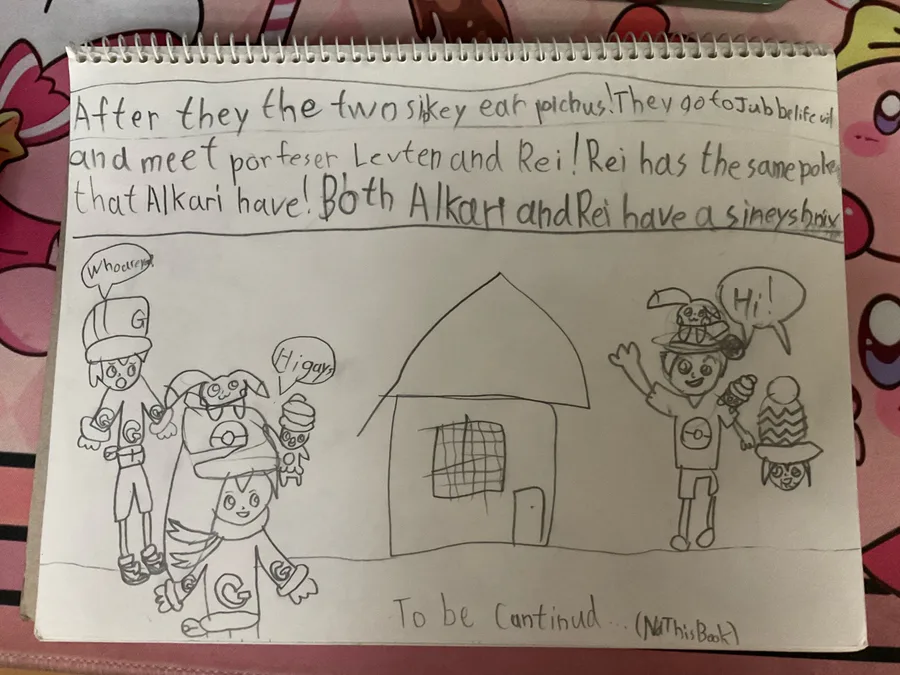 After they the two sikey ear pichus! They go to Jubbelife vil
and meet porfeser Levten and Rei! Rei has the same poke
that Alkari have! Both Alkari and Rei have a sineys
Hi!
G
Hi gays
G
G
G
G
G
G
To be Cantinud... (NaThisBook)